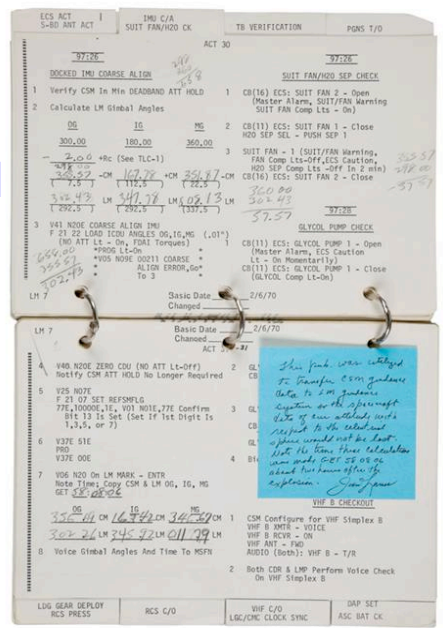 ECS ACT
S-BD ANT ACT
IMU C/A
SUIT FAN/H2O CK
TB VERIFICATION
PGNS T/O
ACT 30
97:26
DOCKED IMU COARSE ALIGN
1 Verify CSM In Min DEADBAND ATT HOLD
2 Calculate LM Gimbal Angles
OG IG MG
300.00 180.00 360.00
- 2.00 +Rc (See TLC-1)
298.00
355.57 -CM 167.78 +CM 351.87 -CM
( 7.5 ) (112.5 ) ( 22.5 )
302.43 LM 347.78 LM 08.13 LM
( 292.5 ) ( 292.5 ) (337.5 )
3 V41 N20E COARSE ALIGN IMU
F 21 22 LOAD ICDU ANGLES OG,IG,MG (.01°)
(NO ATT Lt - On, FDAI Torques)
*PROG Lt-On *
*V05 N09E 00211 COARSE *
* ALIGN ERROR,Go*
* To 3 *
658.00
355.57
302.43
97:26
SUIT FAN/H2O SEP CHECK
1 CB(16) ECS: SUIT FAN 2 - Open
(Master Alarm, SUIT/FAN Warning
SUIT FAN Comp Lts - On)
2 CB(11) ECS: SUIT FAN 1 - Close
SEP SEL - PUSH SEP 1
3 SUIT FAN - 1 (SUIT/FAN Warning,
FAN Comp Lts-Off,ECS Caution,
H2O SEP Comp Lts -Off In 2 min)
CB(16) ECS: SUIT FAN 2 - Close
360.00
302.43
57.57
355.57
298.00
57.57
97:28
GLYCOL PUMP CHECK
1 CB(11) ECS: GLYCOL PUMP 1 - Open
(Master Alarm, ECS Caution
Lt - On Momentarily)
CB(11) ECS: GLYCOL PUMP 1 - Close
(GLYCOL Comp Lt - On)
LM 7
Basic Date 2/6/70
Changed
LM 7
Basic Date 2/6/70
Changed
ACT 31
4 V40 N20E ZERO CDU (NO ATT Lt-Off)
Notify CSM ATT HOLD No Longer Required
5 V25 N07E
F 21 07 SET REFSMFLG
77E,10000E,1E, V01 N01E,77E Confirm
Bit 13 Is Set (Set If 1st Digit Is
1,3,5, or 7)
6 V37E 51E
PRO
V37E 00E
7 V06 N20 On LM MARK - ENTR
Note Time; Copy CSM & LM OG, IG, MG
GET 58:08:06
OG IG MG
CM CM CM
302.26 LM 345.92 LM 011.79 LM
8 Voice Gimbal Angles And Time To MSFN
2
3
4
This pub. was utilized
to transfer CSM guidance
data to LM guidance
system so the spacecraft
data of our attitude with
respect to the celestial
sphere would not be lost.
Note the time these calculations
were made GET 58:08:06
about two hours after the
explosion.
VHF B CHECKOUT
1 CSM Configure for VHF Simplex B
VHF B XMTR - VOICE
VHF B RCVR - ON
VHF ANT - FWD
AUDIO (Both): VHF B - T/R
2 Both CDR & LMP Perform Voice Check
On VHF Simplex B
LDG GEAR DEPLOY
RCS PRESS
RCS C/O
VHF C/O
LGC/CMC CLOCK SYNC
DAP SET
ASC BAT CK